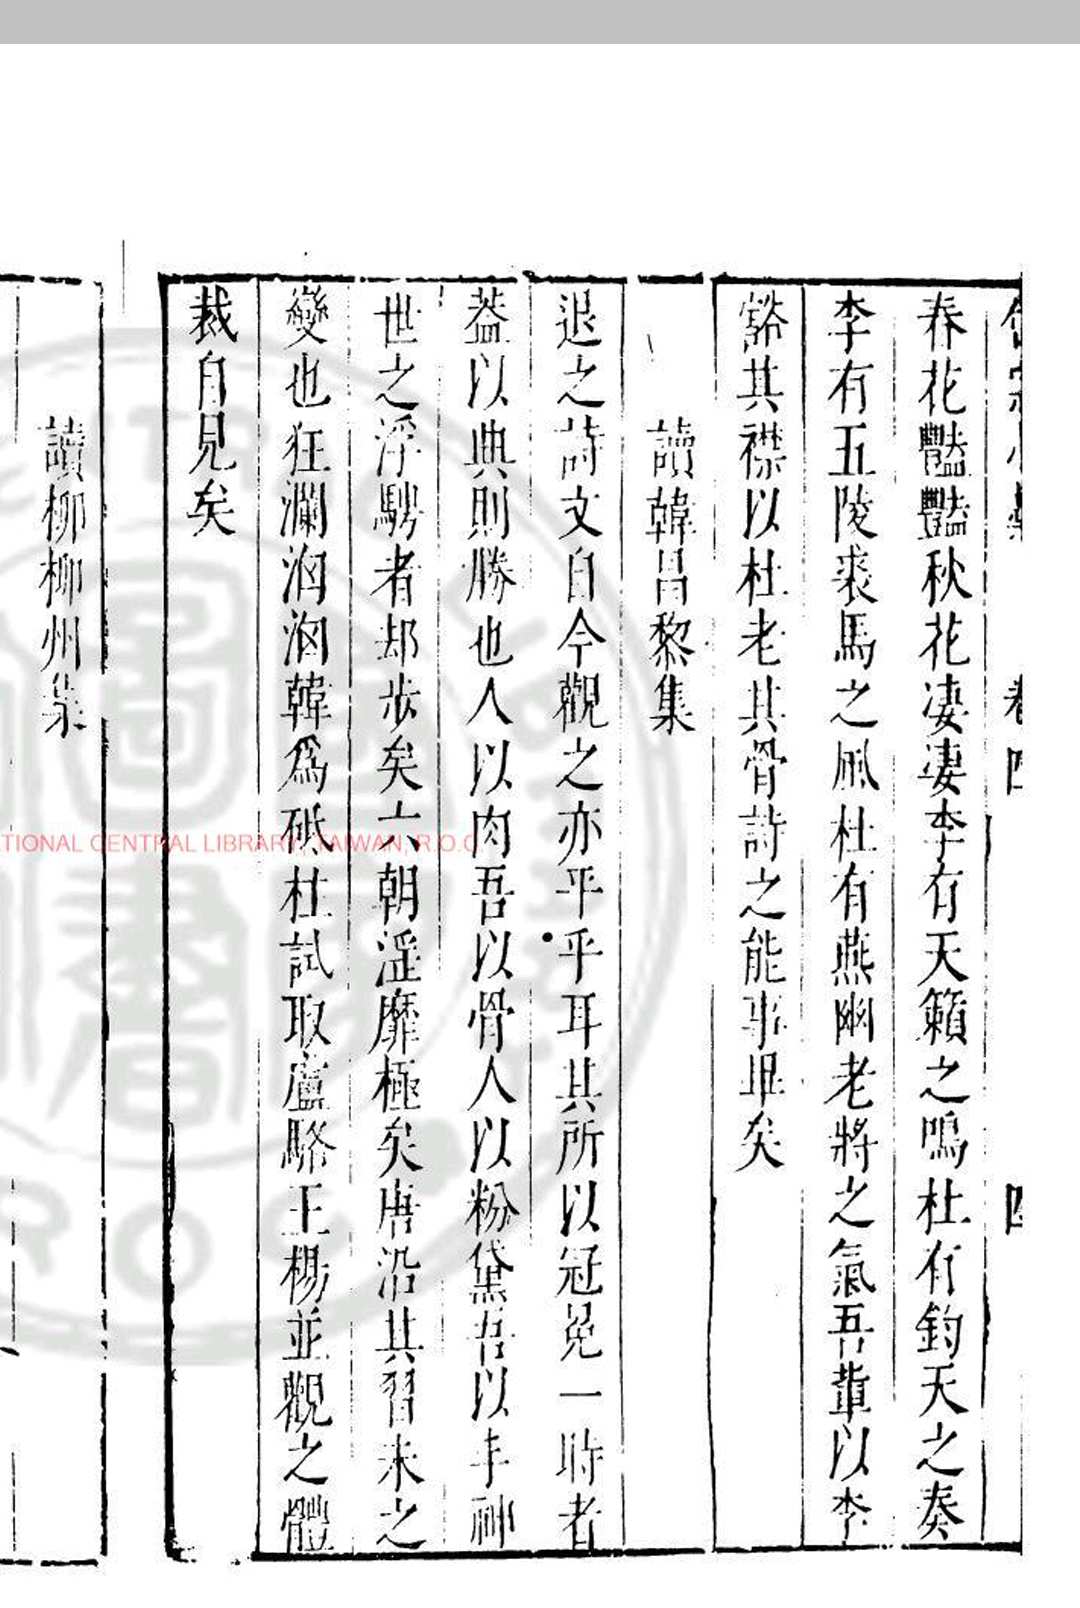 卷四 四
春花豔豔秋花凄凄李有天籟之鳴杜有鈞天之奏
李有五陵裘馬之風杜有燕幽老將之氣吾輩以李
豁其襟以杜老其骨詩之能事畢矣
讀韓昌黎集
退之詩文自今觀之亦平平耳其所以冠冕一時者
葢以典則勝也人以肉吾以骨人以粉黛吾以丰神
世之浮騁者却步矣六朝淫靡極矣唐沿其習未之
變也狂瀾洶洶韓爲砥柱試取盧駱王楊並觀之體
裁自見矣
讀柳柳州集
NATIONAL CENTRAL LIBRARY, TAIWAN, R.O.C.